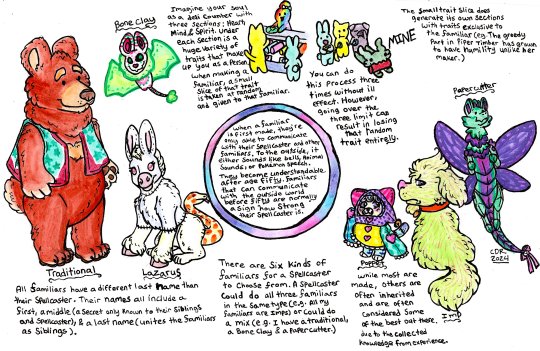 Bone Clay
Imagine your soul
as a Deli Counter with
three sections; Heart,
Mind & Spirit. Under
each section is a
huge variety of
traits that make
up you as a Person.
When making a
familiar, a small
slice of that trait
is taken at random
and given to that familiar.
MINE
You can do
this process three
times without ill
effect. However,
going over the
three limit can
result in losing
that random
trait entirely.
The small trait slice does
generate its own sections
with traits exclusive to
the familiar (eg The greedy
part in Piper Timber has grown
to have humility unlike her
maker.)
Papercutter
When a familiar
is first made, they're
only able to communicate
with their spellcaster and other
familiars. To the outside, it
either sounds like bells, animal
sounds, or Pokemon speech.
They become understandable
after age fifty. Familiars
that can communicate
with the outside world
before fifty are normally
a sign how strong
their spellcaster is.
Traditional
Lazarus
Poppet
Imp
CDR
2024
All familiars have a different last name than
their spellcaster. Their names all include a
first, a middle (a secret only known to their siblings
and spellcaster), & a last name (unites the familiars
as siblings).
There are six kinds of
familiars for a spellcaster
to choose from. A spellcaster
could do all three familiars
in the same type (eg. All my
familiars are Imps) or could do
a mix (e.g. I have a traditional,
a Bone Clay & a Papercutter.)
While most are
made, others are
often inherited
and are often
considered some
of the best out there
due to the collected
knowledge from experience.